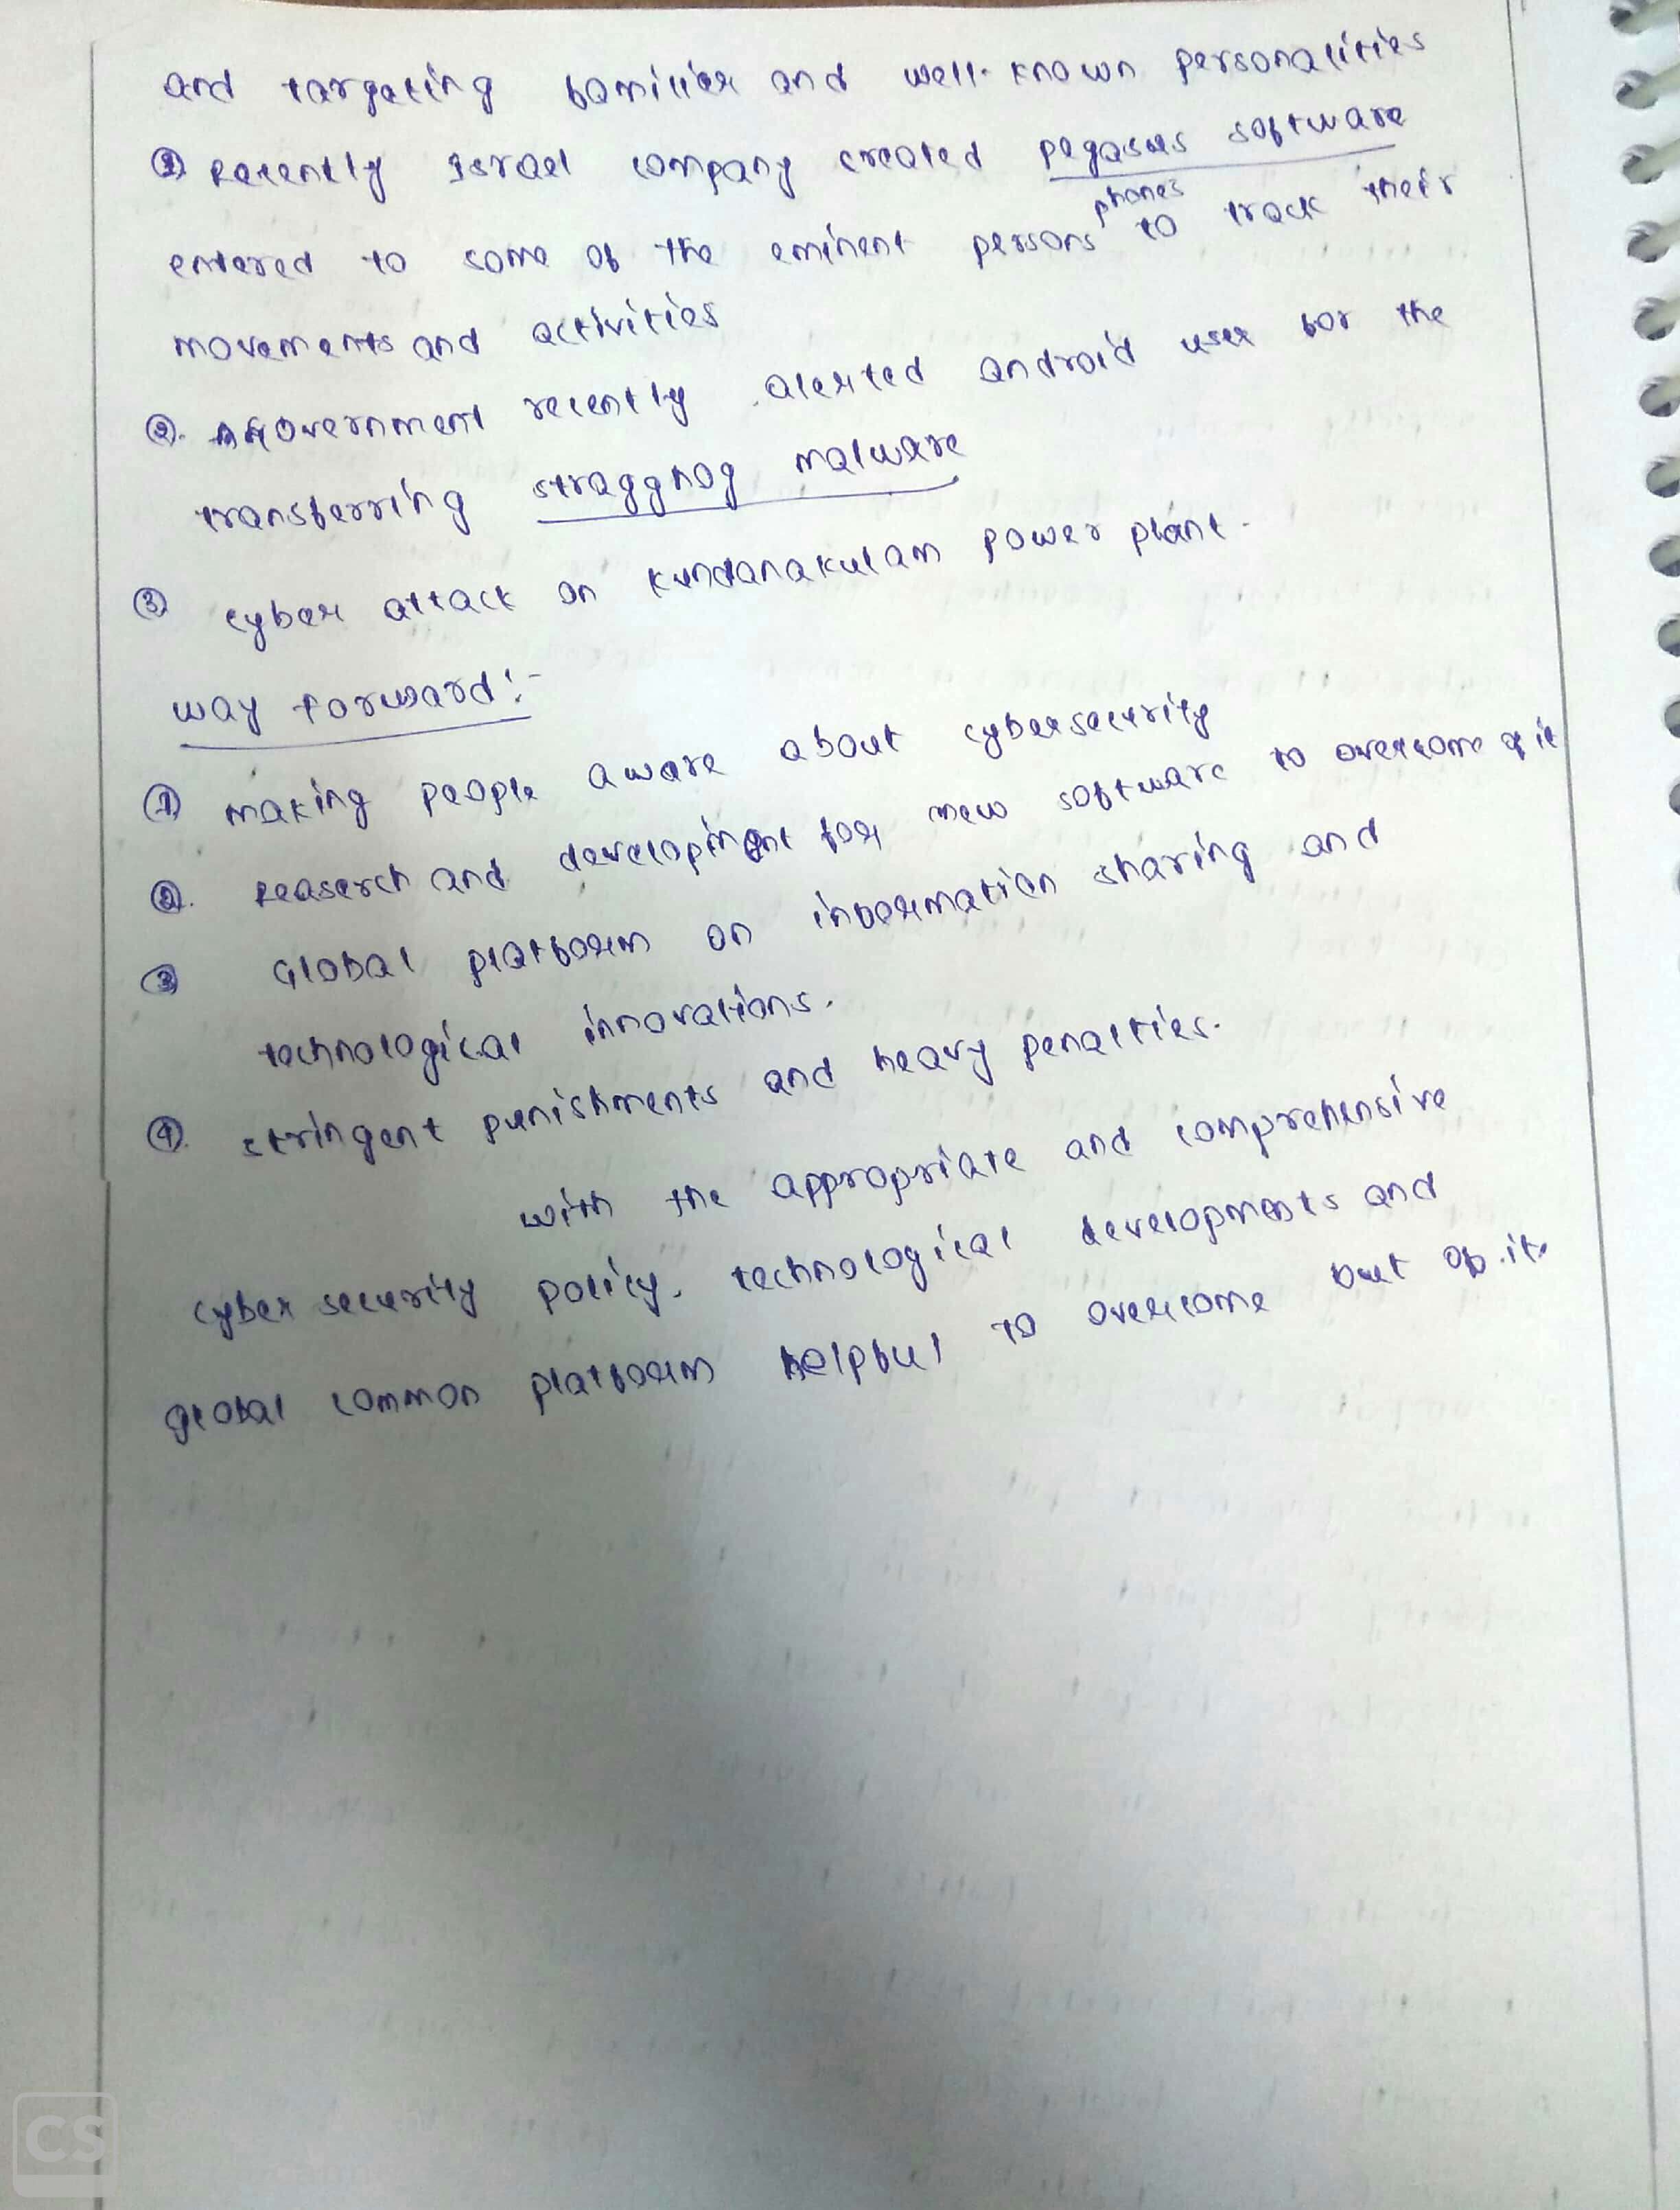 and targeting familier and well-known personalities
① Recently Israel company created pegasus software
entered to some of the eminent persons phones to track their
movements and activities
②. Government recently alerted android user for the
transferring straggnog malware
③ cyber attack on kundanakulam power plant.
way forward:-
① making people aware about cybersecurity
②. Reaserch and development for new software to overcome of it
③ Global platform on information sharing and
technological innovations.
④. stringent punishments and heavy penalties.
with the appropriate and comprehensive
cyber security policy, technological developments and
global common platform helpful to overcome out of it.
CS